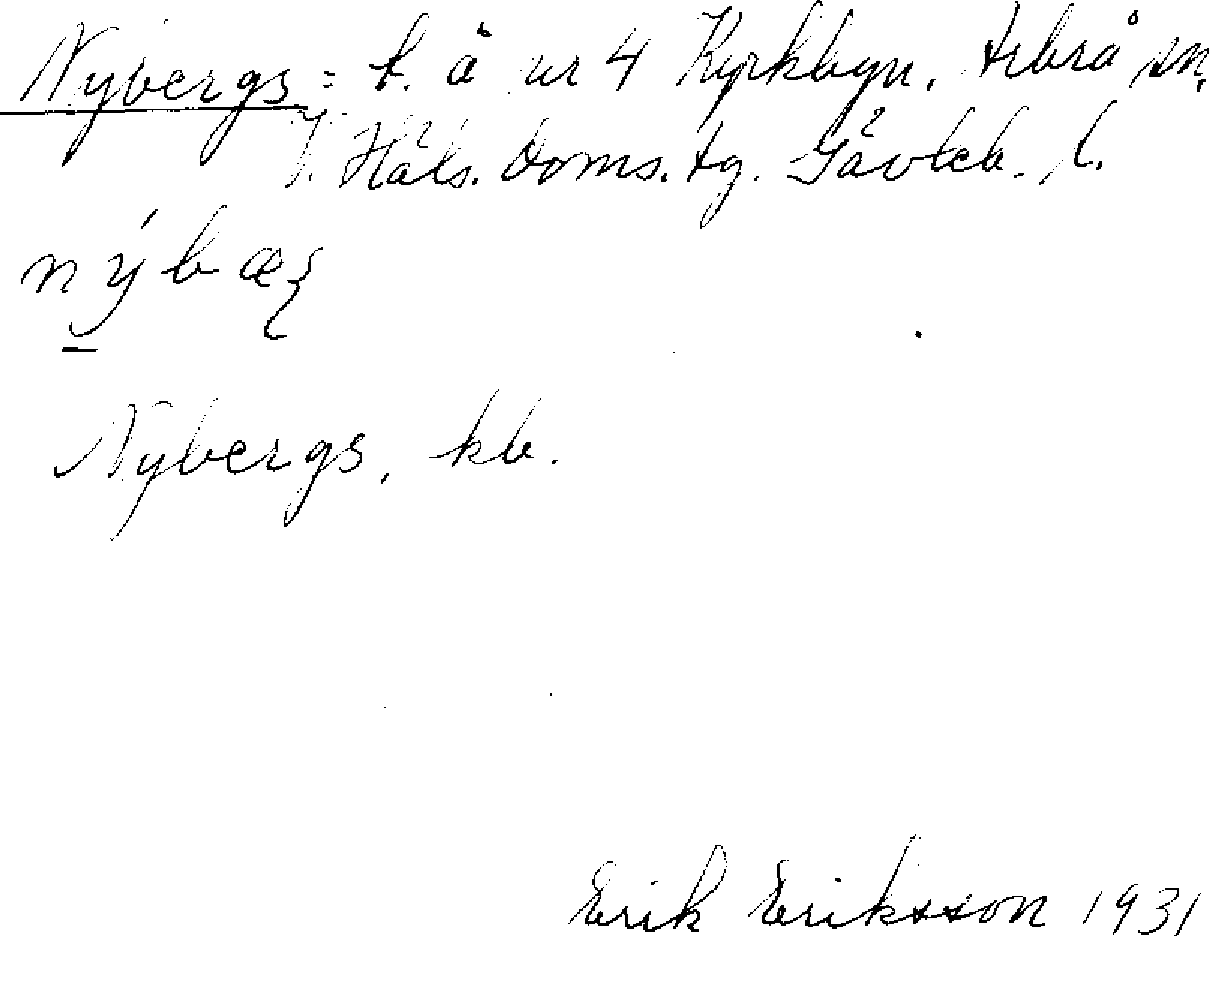 Nybergs = t. å nr 4 Kyrkbyn. Arbrå sn.
V. Häls. Doms. tg. Gävleb. l.
nýbæ
Nybergs, kb.
Erik Eriksson 1931